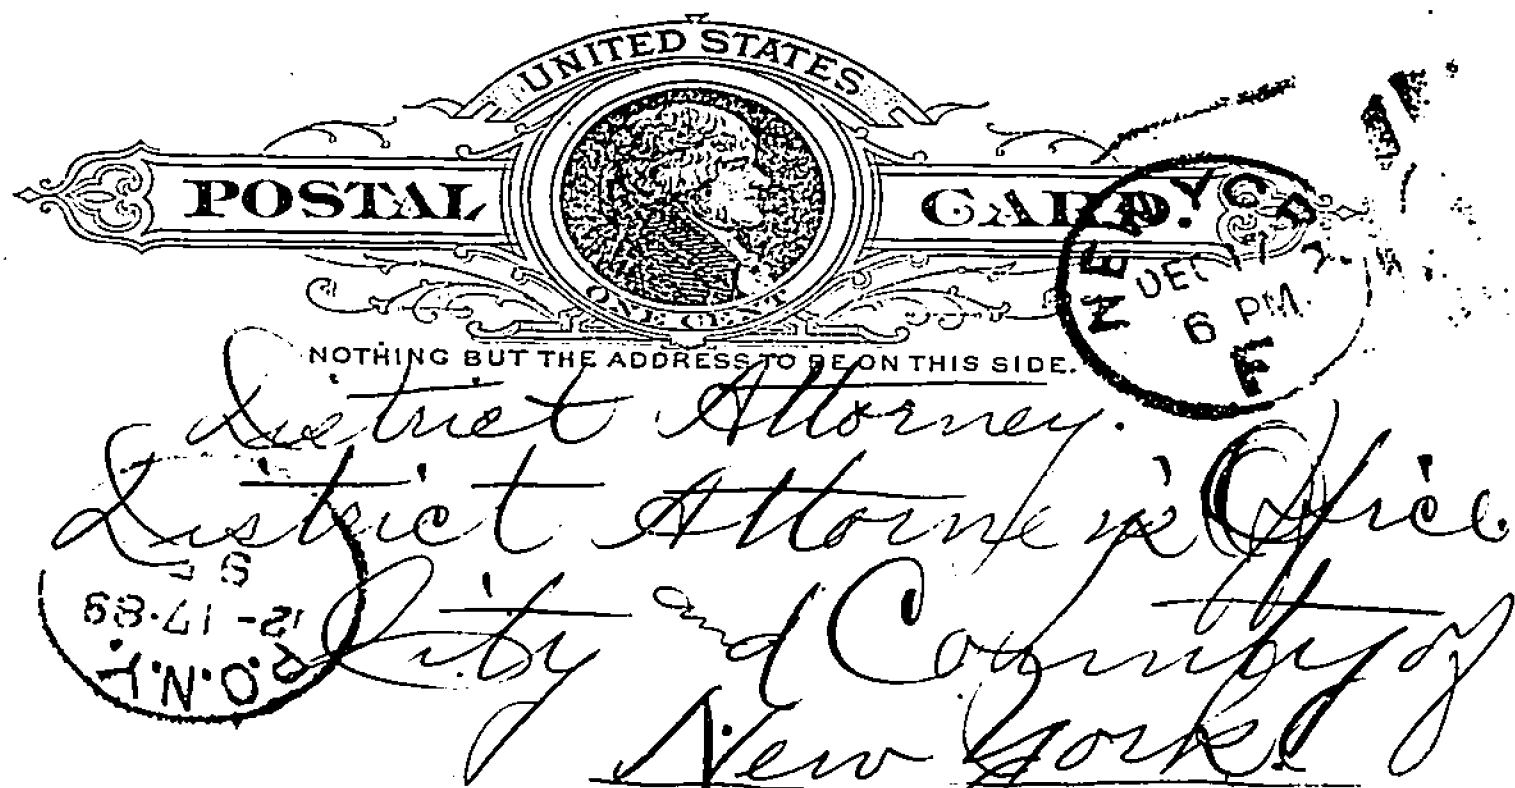 UNITED STATES
POSTAL CARD.
ONE CENT
NOTHING BUT THE ADDRESS TO BE ON THIS SIDE.
NEW Y
DEC 17
6 PM.
E
District Attorney.
District Attorney's Office.
City and County of
New York.
P.O.N.Y.
12-17-89